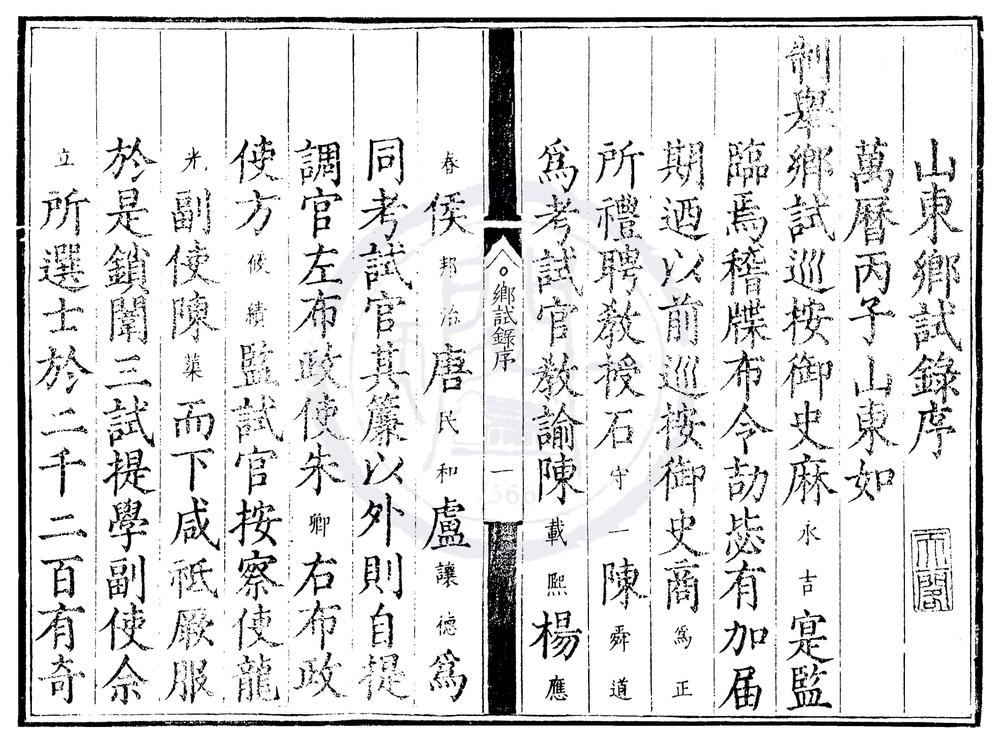 山東鄉試錄序
萬曆丙子山東如
制舉鄉試巡按御史麻永吉寔監
臨焉稽牒布令劼毖有加届
期迺以前巡按御史商為正
所禮聘敎授石守一陳舜道
爲考試官敎諭陳載熙楊應
鄉試錄序
一
春侯邦治唐民和盧讓德爲
同考試官其簾以外則自提
調官左布政使朱卿右布政
使方攸績監試官按察使龍
光副使陳蕖而下咸祗厥服
於是鎖闈三試提學副使佘
立所選士於二千二百有奇